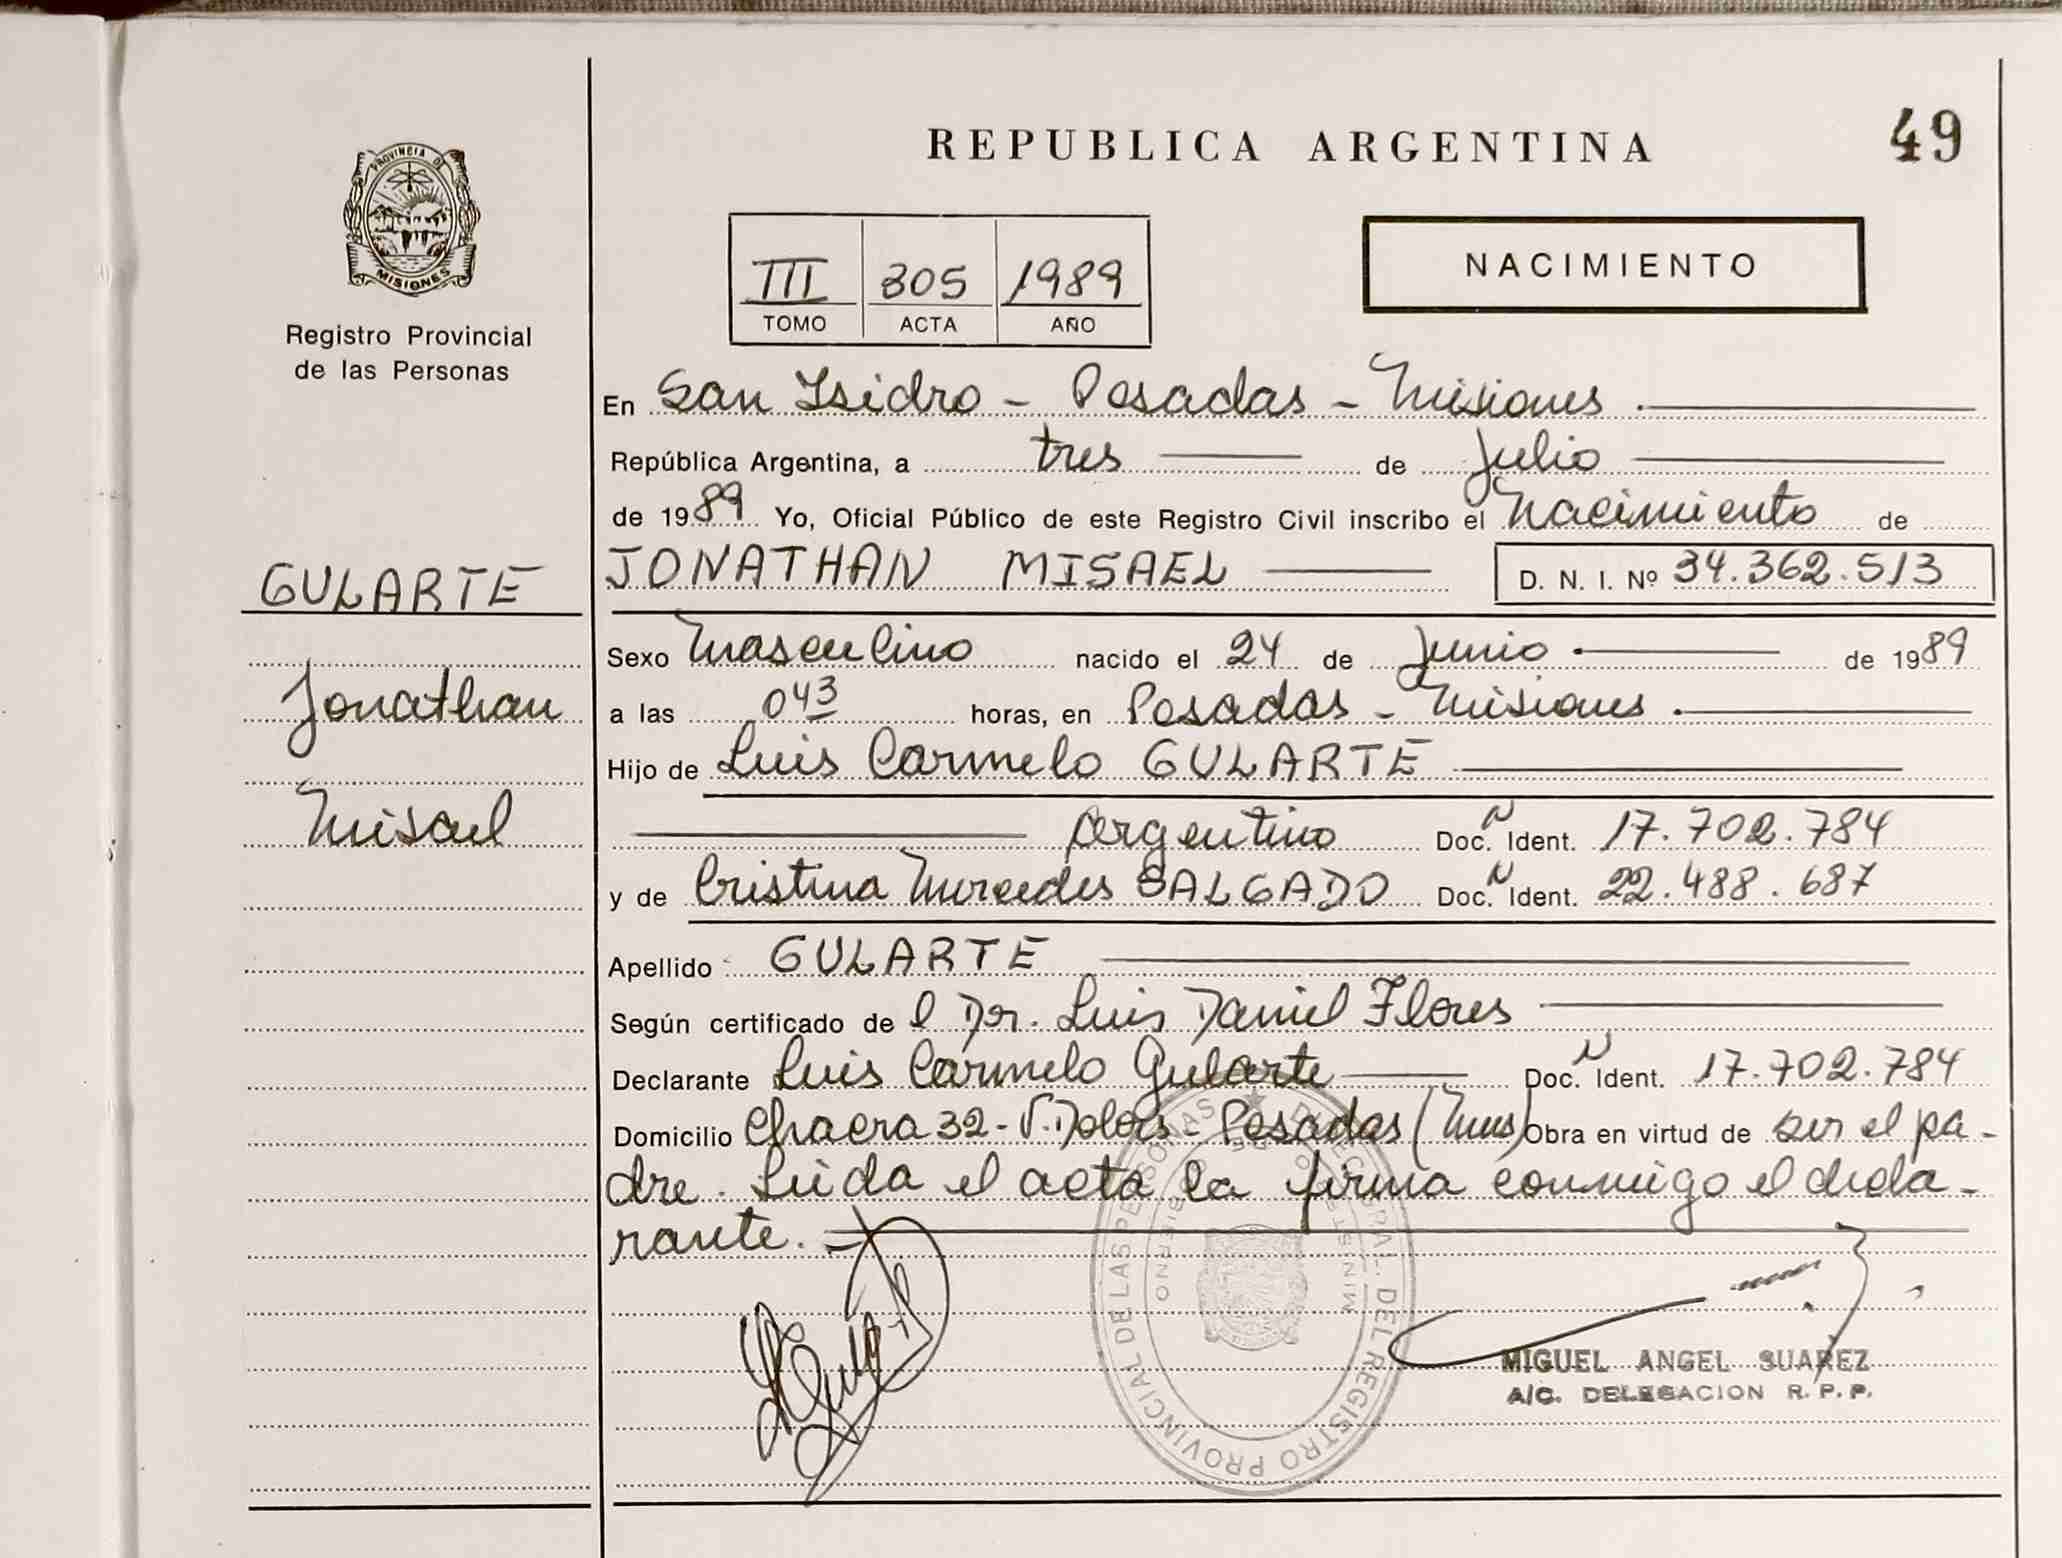 REPUBLICA ARGENTINA
49
PROVINCIA DE
MISIONES
Registro Provincial
de las Personas
III 305 1989
TOMO ACTA AÑO
NACIMIENTO
En San Isidro - Posadas - Misiones.
República Argentina, a tres de Julio
de 1989 Yo, Oficial Público de este Registro Civil inscribo el Nacimiento de
GULARTE
Jonathan
Misael
JONATHAN MISAEL D. N. I. Nº 34.362.513
Sexo Masculino nacido el 24 de Junio de 1989
a las 043 horas, en Posadas - Misiones.
Hijo de Luis Carmelo GULARTE
Argentino Doc. N Ident. 17.702.784
y de Cristina Mercedes SALGADO Doc. N Ident. 22.488.687
Apellido GULARTE
Según certificado de l Dr. Luis Daniel Flores
Declarante Luis Carmelo Gularte Doc. N Ident. 17.702.784
Domicilio Chacra 32 - V. Dolores - Posadas (Mnes) Obra en virtud de ser el pa-
dre. Leida el acta la firma conmigo el decla-
rante.
DIREC GRAL. DEL REGISTRO PROVINCIAL DE LAS PERSONAS
MINISTRO DE GOBIERNO
MIGUEL ANGEL SUAREZ
A/C. DELEGACION R. P. P.